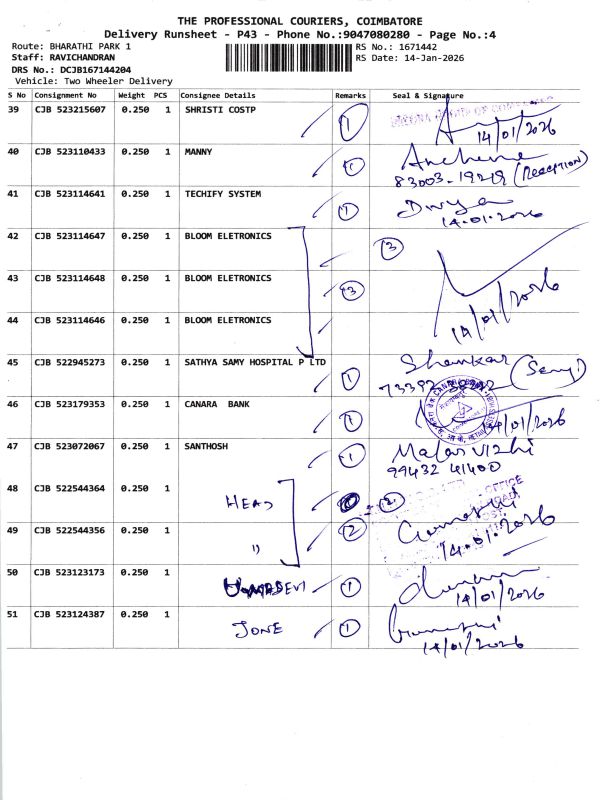 THE PROFESSIONAL COURIERS, COIMBATORE
Delivery Runsheet - P43 - Phone No.:9047080231 - Page No.:4
Route: BHARATHI PARK 1 RS No.: 1671442
Staff: RAVICHANDRAN RS Date: 14-Jan-2026
DRS No.: DCJB167144204
Vehicle: Two Wheeler Delivery
S No Consignment No Weight PCS Consignee Details Remarks Seal & Signature
39 CJB 523215607 0.250 1 SHRISTI COSTP 1 14/01/2026
40 CJB 523110433 0.250 1 MANNY 1
83003-19219 (Reception)
41 CJB 523114641 0.250 1 TECHIFY SYSTEM 1 Divya
14.01.2026
42 CJB 523114647 0.250 1 BLOOM ELETRONICS 3
43 CJB 523114648 0.250 1 BLOOM ELETRONICS 3
14/01/2026
44 CJB 523114646 0.250 1 BLOOM ELETRONICS
45 CJB 522945273 0.250 1 SATHYA SAMY HOSPITAL P LTD 1 Shankar
73392
46 CJB 523179353 0.250 1 CANARA BANK 1 14/01/2026
47 CJB 523072067 0.250 1 SANTHOSH 1 Malar Vizhi
99432 41400
48 CJB 522544364 0.250 1 HEAD 2
49 CJB 522544356 0.250 1 " 2
14.01.2026
50 CJB 523123173 0.250 1 UMADEVI 1
14/01/2026
51 CJB 523124387 0.250 1 JONE 1
14/01/2026